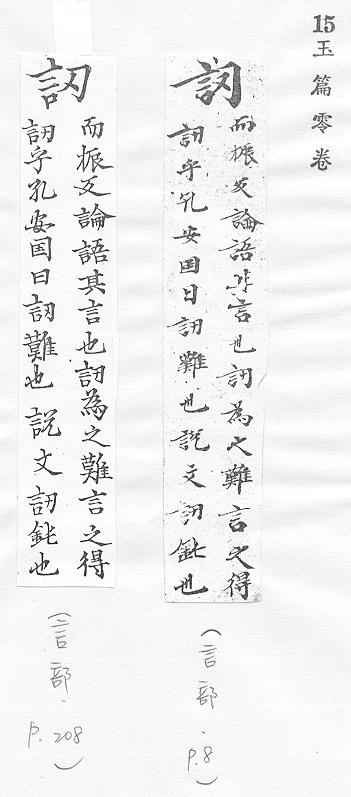 15
玉篇零卷
訒
而振反論語其言也訒為之難言之得
訒乎孔安国曰訒難也說文訒鈍也
(言部.
p.8)
訒
而振反論語其言也訒為之難言之得
訒乎孔安国曰訒難也說文訒鈍也
(言部.
p.208)